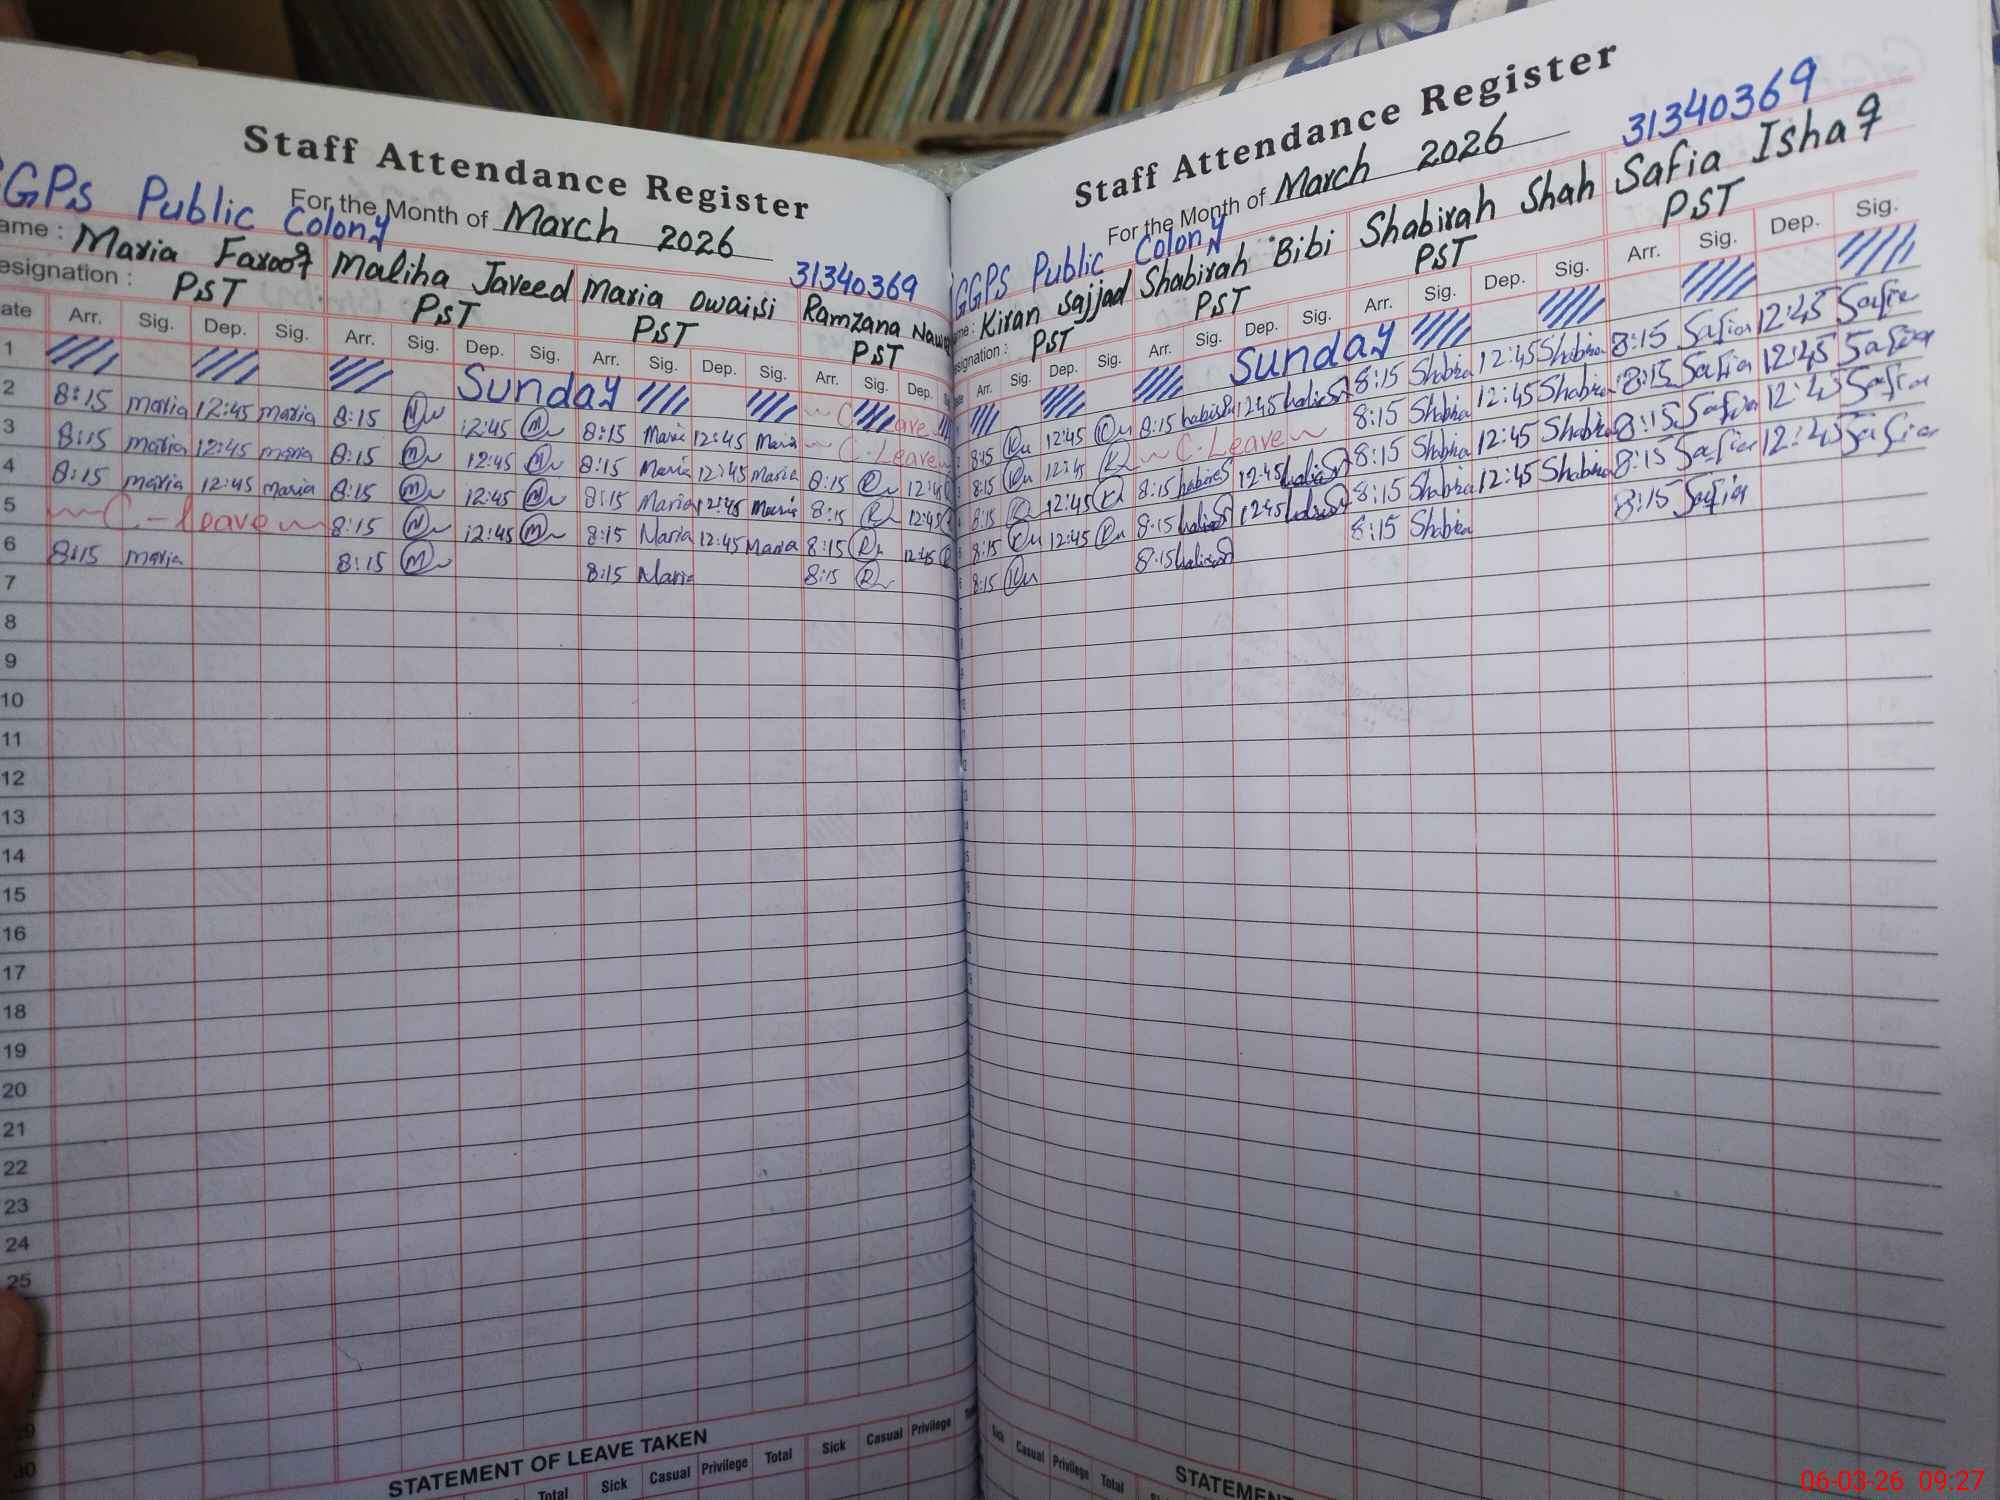 Staff Attendance Register
GGPS Public Colony
For the Month of March 2026
31340369
Name : Maria Farooq Maliha Javeed Maria Owaisi Ramzana Nawaz
Designation : PST PST PST PST
Date Arr. Sig. Dep. Sig. Arr. Sig. Dep. Sig. Arr. Sig. Dep. Sig. Arr. Sig. Dep.
1 Sunday
2 8:15 maria 12:45 maria 8:15 12:45 8:15 Maria 12:45 Maria C. Leave
3 8:15 maria 12:45 maria 8:15 12:45 8:15 Maria 12:45 Maria C. Leave
4 8:15 maria 12:45 maria 8:15 12:45 8:15 Maria 12:45 Maria 8:15 12:45
5 C-leave 8:15 12:45 8:15 Maria 12:45 Maria 8:15 12:45
6 8:15 maria 8:15 8:15 Maria 8:15
7
8
9
10
11
12
13
14
15
16
17
18
19
20
21
22
23
24
25
30
STATEMENT OF LEAVE TAKEN
Total Sick Casual Privilege Total Sick Casual Privilege
Staff Attendance Register
31340369
For the Month of March 2026
GGPS Public Colony
Name : Kiran Sajjad Shabirah Bibi Shabirah Shah Safia Ishaq
Designation : PST PST PST PST
Arr. Sig. Dep. Sig. Arr. Sig. Dep. Sig. Arr. Sig. Dep. Sig. Arr. Sig. Dep. Sig.
Sunday
8:15 12:45 8:15 12:45 8:15 Shabira 12:45 Shabira 8:15 Safia 12:45 Safia
8:15 12:45 C. Leave 8:15 Shabira 12:45 Shabira 8:15 Safia 12:45 Safia
8:15 12:45 8:15 12:45 8:15 Shabira 12:45 Shabira 8:15 Safia 12:45 Safia
8:15 12:45 8:15 12:45 8:15 Shabira 12:45 Shabira 8:15 Safia 12:45 Safia
8:15 8:15 8:15 Shabira 8:15 Safia
Sick Casual Privilege Total
STATEMENT
06-03-26 09:27